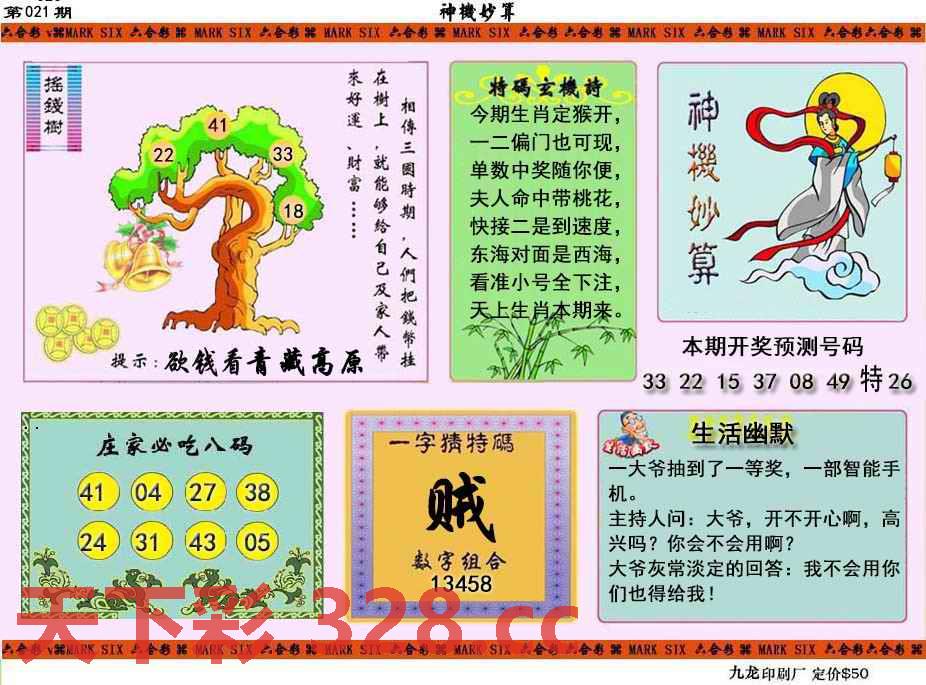 第021期
神機妙算
六合彩 MARK SIX 六合彩 MARK SIX 六合彩 MARK SIX 六合彩 MARK SIX 六合彩 MARK SIX 六合彩 MARK SIX 六合彩六合彩
搖錢樹
41
22
33
18
相傳三國時期，人們把錢幣挂
在樹上，就能够給自己及家人帶
來好運、財富……
提示：欲钱看青藏高原
特碼玄機詩
今期生肖定猴开，
一二偏门也可现，
单数中奖随你便，
夫人命中带桃花，
快接二是到速度，
东海对面是西海，
看准小号全下注，
天上生肖本期来。
神機妙算
本期开奖预测号码
33 22 15 37 08 49 特26
庄家必吃八码
41 04 27 38
24 31 43 05
一字猜特碼
贼
数字组合
13458
生活幽默
生活幽默
一大爷抽到了一等奖，一部智能手
机。
主持人问：大爷，开不开心啊，高
兴吗？你会不会用啊？
大爷灰常淡定的回答：我不会用你
们也得给我！
天下彩 328.cc
六合彩 MARK SIX 六合彩 MARK SIX 六合彩 MARK SIX 六合彩 MARK SIX 六合彩 MARK SIX 六合彩 MARK SIX 六合彩六合彩
九龙印刷厂 定价$50